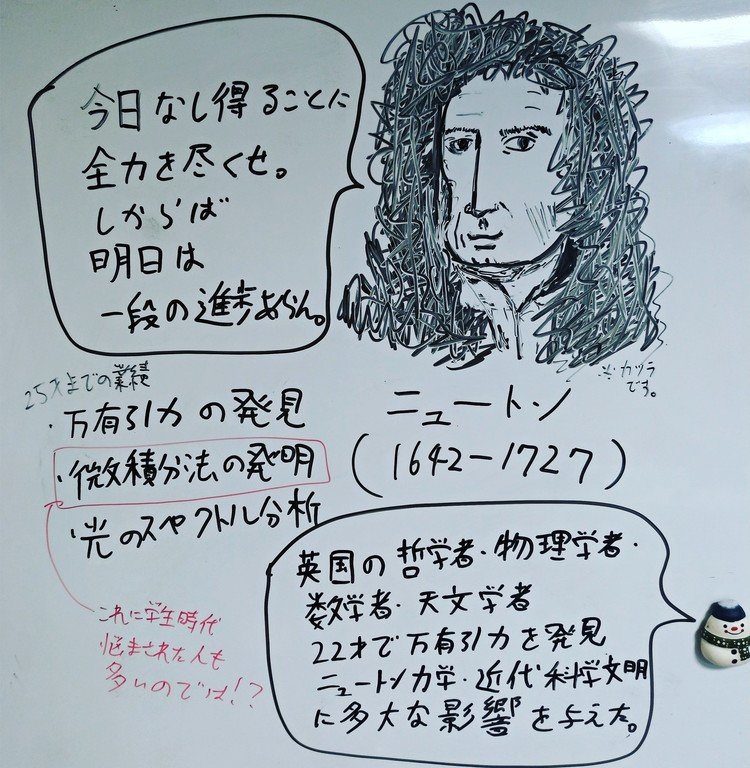 今日なし得ることに
全力を尽くせ。
しからば
明日は
一段の進歩あらん。
※カツラ
です。
25才までの業績
・万有引力の発見
・微積分法の発明
・光のスペクトル分析
ニュートン
(1642-1727)
これに学生時代
悩まされた人も
多いのでは!?
英国の哲学者・物理学者・
数学者・天文学者
22才で万有引力を発見
ニュートン力学・近代科学文明
に多大な影響を与えた。